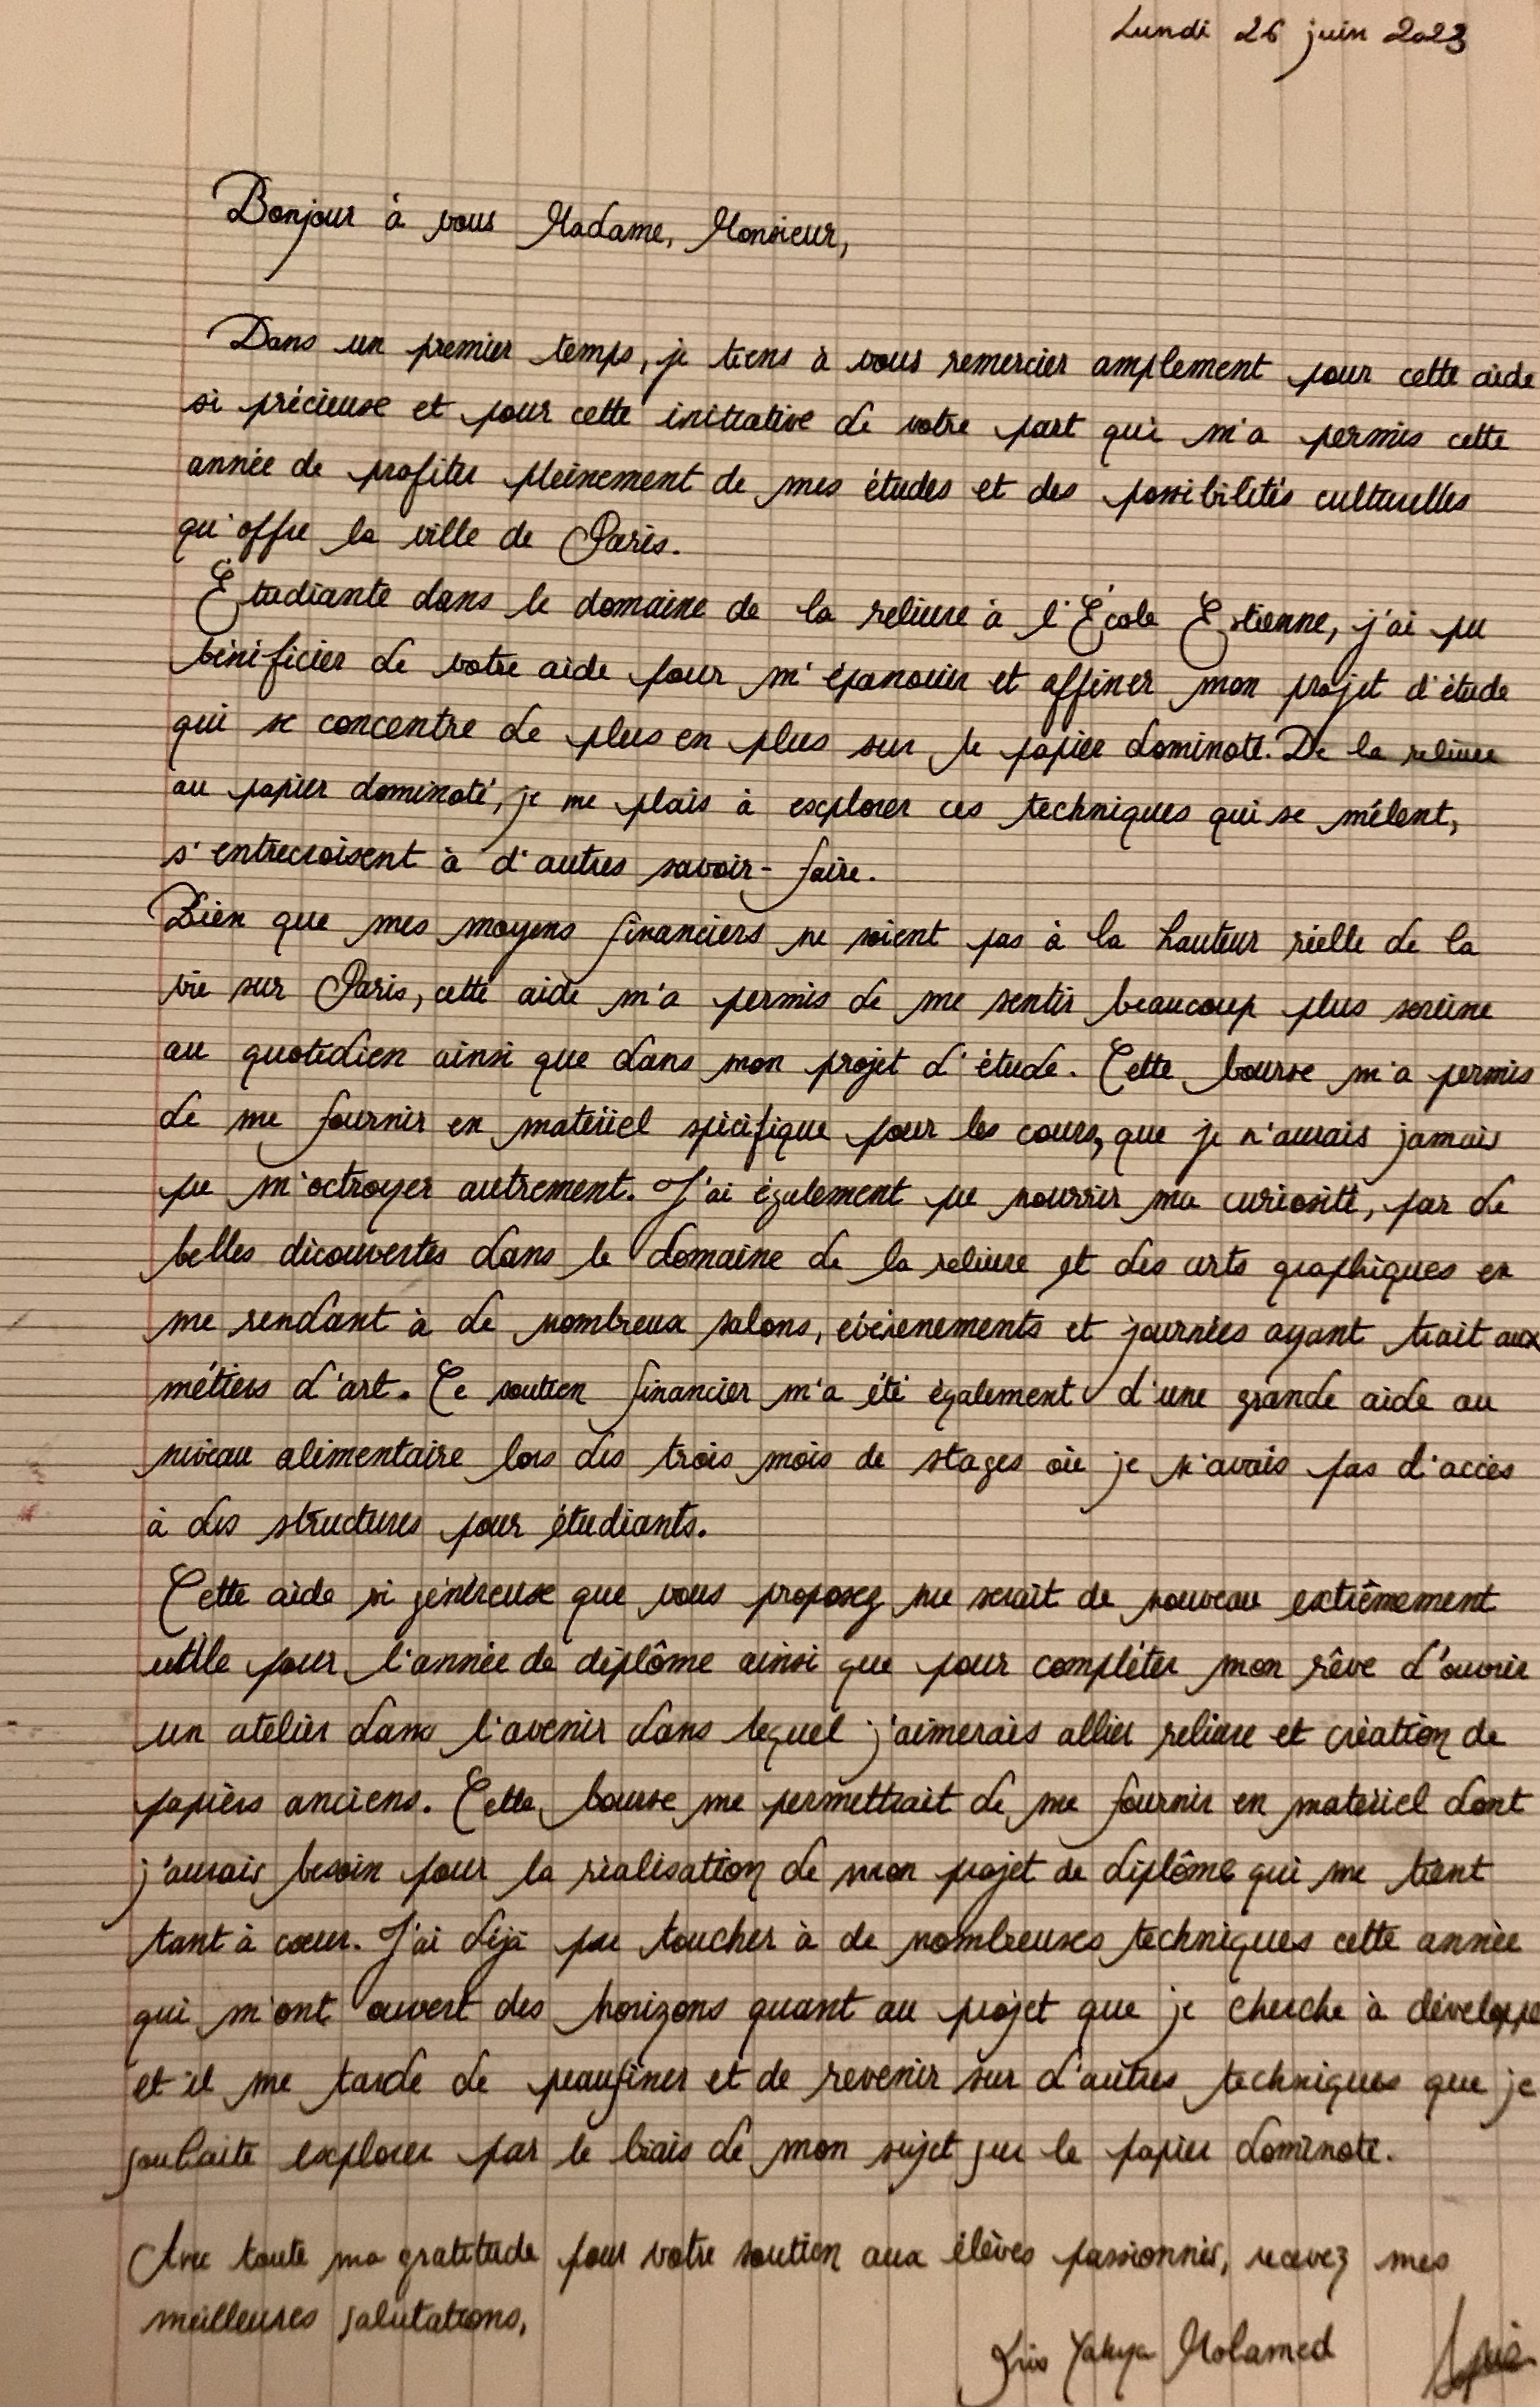 Lundi 26 juin 2023
Bonjour à vous Madame, Monsieur,
Dans un premier temps, je tiens à vous remercier amplement pour cette aide
si précieuse et pour cette initiative de votre part qui m'a permis cette
année de profiter pleinement de mes études et des possibilités culturelles
qu'offre la ville de Paris.
Étudiante dans le domaine de la reliure à l'École Estienne, j'ai pu
bénéficier de votre aide pour m'épanouir et affiner mon projet d'étude
qui se concentre de plus en plus sur le papier dominoté. De la reliure
au papier dominoté, je me plais à explorer ces techniques qui se mêlent,
s'entrecroisent à d'autres savoir-faire.
Bien que mes moyens financiers ne soient pas à la hauteur réelle de la
vie sur Paris, cette aide m'a permis de me sentir beaucoup plus sereine
au quotidien ainsi que dans mon projet d'étude. Cette bourse m'a permis
de me fournir en matériel spécifique pour les cours, que je n'aurais jamais
pu m'octroyer autrement. J'ai également pu nourrir ma curiosité, par de
belles découvertes dans le domaine de la reliure et des arts graphiques en
me rendant à de nombreux salons, évènements et journées ayant trait aux
métiers d'art. Ce soutien financier m'a été également d'une grande aide au
niveau alimentaire lors des trois mois de stages où je n'avais pas d'accès
à des structures pour étudiants.
Cette aide si généreuse que vous proposez me serait de nouveau extrêmement
utile pour l'année de diplôme ainsi que pour compléter mon rêve d'ouvrir
un atelier dans l'avenir dans lequel j'aimerais allier reliure et création de
papiers anciens. Cette bourse me permettrait de me fournir en matériel dont
j'aurais besoin pour la réalisation de mon projet de diplôme qui me tient
tant à cœur. J'ai déjà pu toucher à de nombreuses techniques cette année
qui m'ont ouvert des horizons quant au projet que je cherche à développe
et il me tarde de peaufiner et de revenir sur d'autres techniques que je
souhaite explorer par le biais de mon sujet sur le papier dominoté.
Avec toute ma gratitude pour votre soutien aux élèves passionnés, recevez mes
meilleures salutations,
Iris Yahya Mohamed